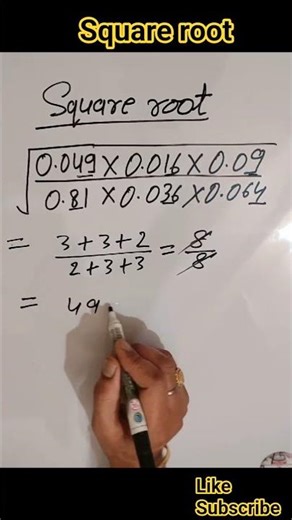 Square root
Square root
√(0.049 × 0.016 × 0.09 / 0.81 × 0.036 × 0.064)
= 3+3+2 / 2+3+3 = 8 / 8
= 49
Like
Subscribe